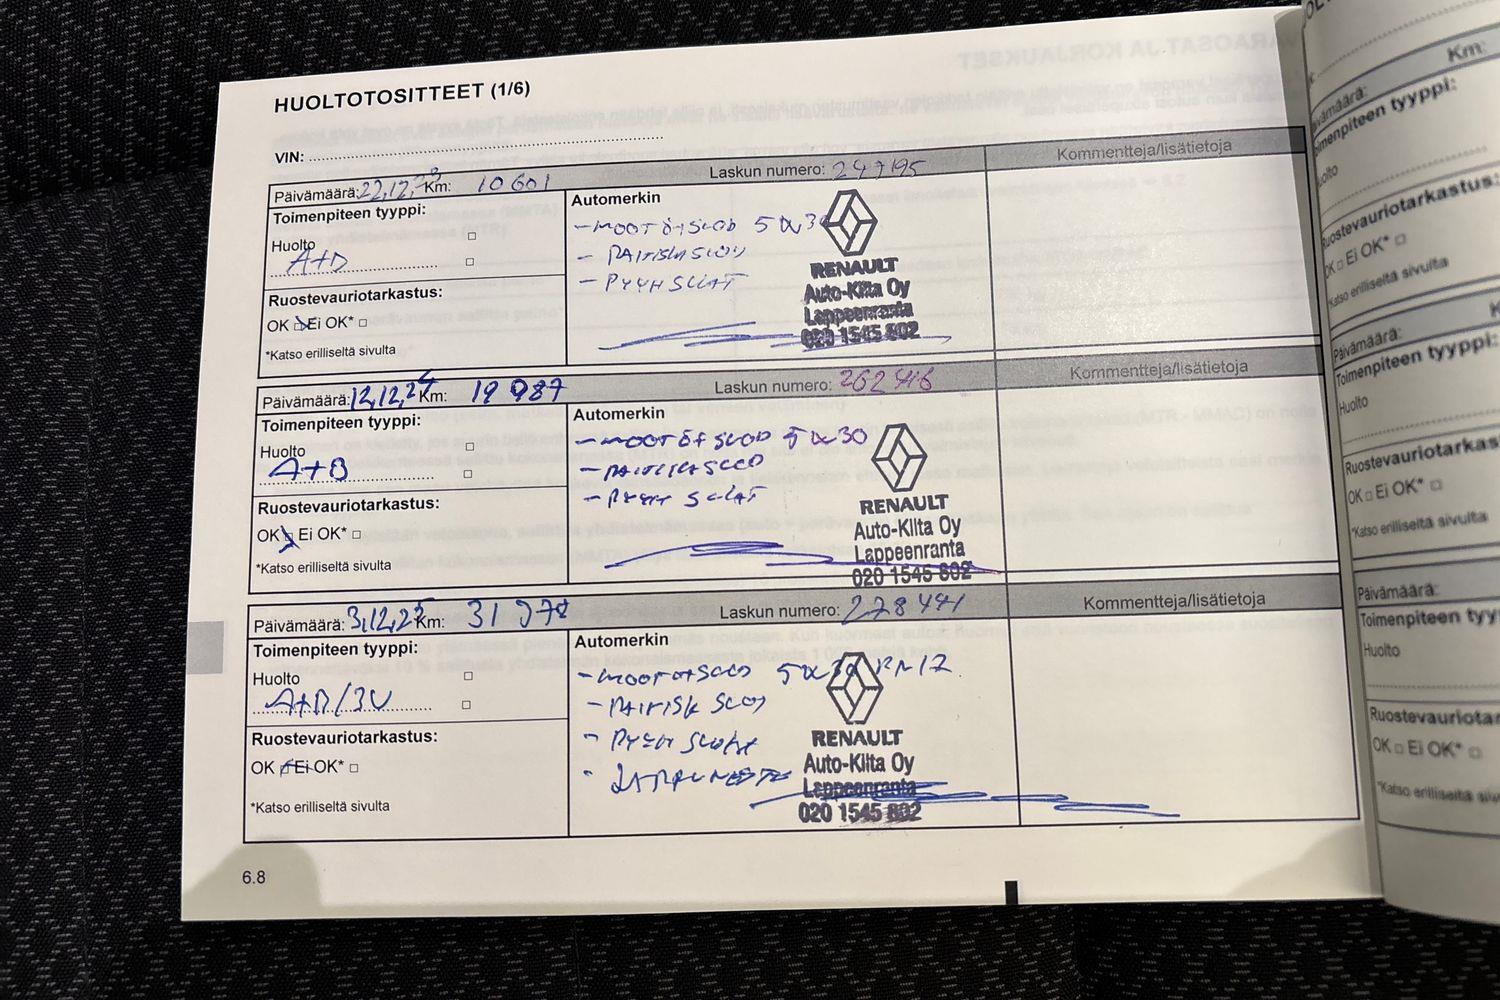 HUOLTOTOSITTEET (1/6)
VIN:
Päivämäärä: 22,12,23 Km: 10 601 Laskun numero: 247195 Kommentteja/lisätietoja
Toimenpiteen tyyppi:
Huolto □
A+B □
Ruostevauriotarkastus:
OK □ Ei OK* □
*Katso erilliseltä sivulta
Automerkin
- MOOTÖLJSUOD 5W30
- RAITISILSUOD
- PYYHSULAT
RENAULT
Auto-Kilta Oy
Lappeenranta
020 1545 802
Päivämäärä: 12,12,24 Km: 19 987 Laskun numero: 262416 Kommentteja/lisätietoja
Toimenpiteen tyyppi:
Huolto □
A+B □
Ruostevauriotarkastus:
OK □ Ei OK* □
*Katso erilliseltä sivulta
Automerkin
- MOOTÖLJSUOD 5W30
- RAITISILSUOD
- PYYHSULAT
RENAULT
Auto-Kilta Oy
Lappeenranta
020 1545 802
Päivämäärä: 3,12,25 Km: 31 Laskun numero: 278441 Kommentteja/lisätietoja
Toimenpiteen tyyppi:
Huolto □
A+B/3V □
Ruostevauriotarkastus:
OK □ Ei OK* □
*Katso erilliseltä sivulta
Automerkin
- 5W30 RN17
- RAITISILSUOD
- PYYHSULAT
- JARRUNESTE
RENAULT
Auto-Kilta Oy
Lappeenranta
020 1545 802
6.8
Km:
Päivämäärä:
Toimenpiteen tyyppi:
Huolto
Ruostevauriotarkastus:
OK □ Ei OK* □
*Katso erilliseltä sivulta
Päivämäärä:
Toimenpiteen tyyppi:
Huolto
OK □ Ei OK* □
*Katso erilliseltä sivulta
Päivämäärä:
Huolto
OK □ Ei OK* □